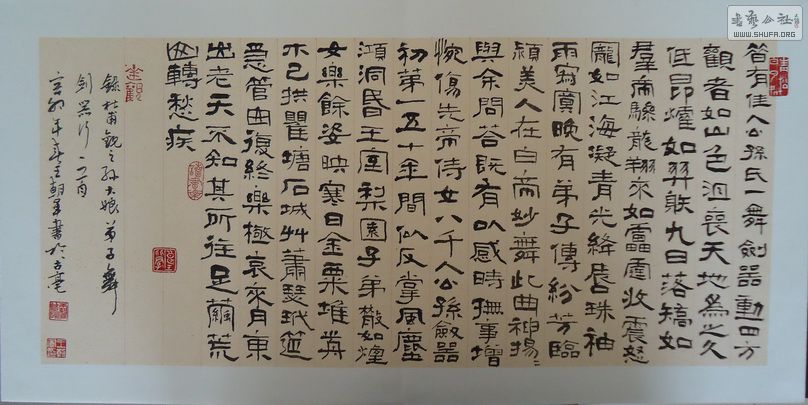 昔有佳人公孫氏一舞劍器動四方
觀者如山色沮喪天地為之久
低昂㸌如羿射九日落矯如
羣帝驂龍翔來如雷霆收震怒
罷如江海凝青光絳唇珠袖
兩寂寞晚有弟子傳紛芳臨
潁美人在白帝妙舞此曲神揚〻
與余問答既有以感時撫事增
惋傷先帝侍女八千人公孫劍器
初第一五十年間似反掌風塵
澒洞昏王室梨園子弟散如煙
女樂餘姿映寒日金粟堆前
木已拱瞿塘石城艸蕭瑟玳筵
急管曲復終樂極哀來月東
出老夫不知其所往足繭荒
山轉愁疾
錄杜甫觀公孫大娘弟子舞
劍器行一首
辛卯年王朝軍書於古亳
書藝公社
WWW.SHUFA.ORG